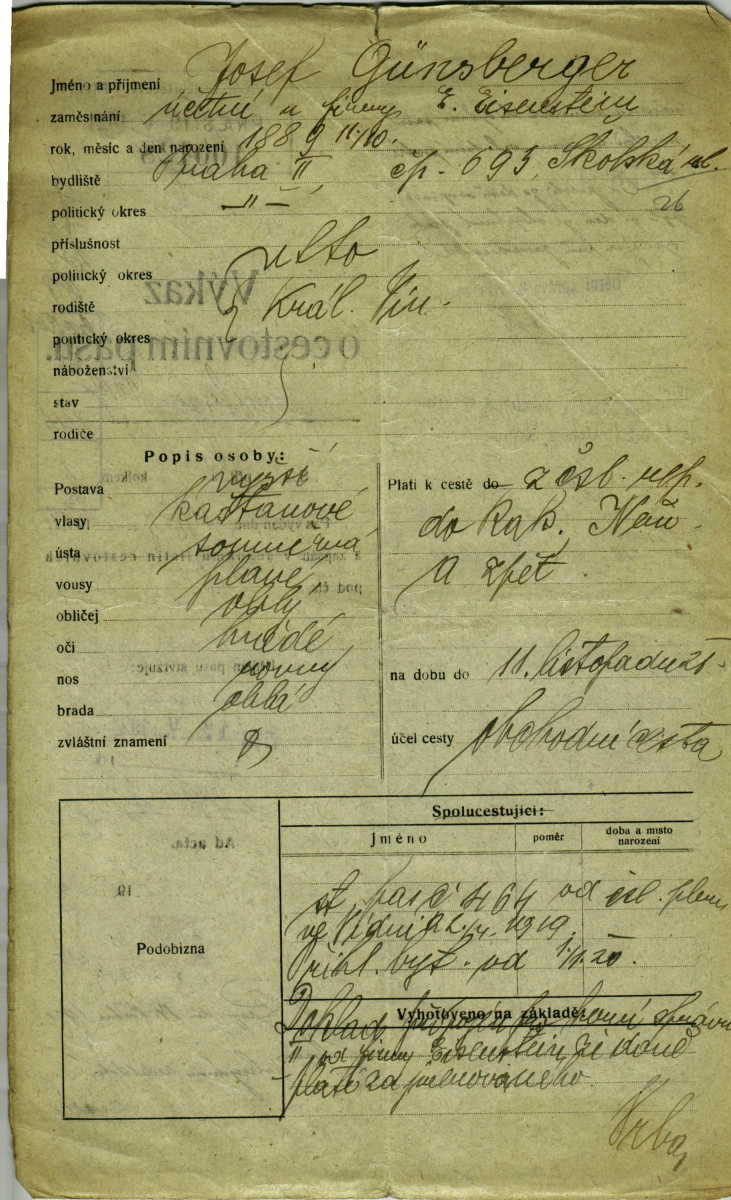 Jméno a příjmení Josef Günsberger
zaměstnání účetní u firmy E. Eisenstein
rok, měsíc a den narození 1889 11./10.
bydliště Praha II čp. 693, Školská ul.
26
politický okres —"—
příslušnost
politický okres
rodiště Král. Vin.
politický okres
náboženství
stav
rodiče
Výkaz
o cestovním pasu.
Popis osoby:
Postava
vlasy kaštanové
ústa souměrná
vousy plavé
obličej oválný
oči hnědé
nos rovný
brada oblá
zvláštní znamení
Platí k cestě do z čsl. rep.
do Rak., Něm.
a zpět.
na dobu do 11. listopadu 21
účel cesty obchodní cesta
Spolucestující:
Jméno poměr doba a místo narození
st. pas č 464 od čsl.
ve Vídni 1919.
Přihl. byt. od
Podobizna
Ad acta.
19
Vyhotoveno na základě:
Doklad
II od firmy Eisenstein že daně
platí za jmenovaného.
Vrba